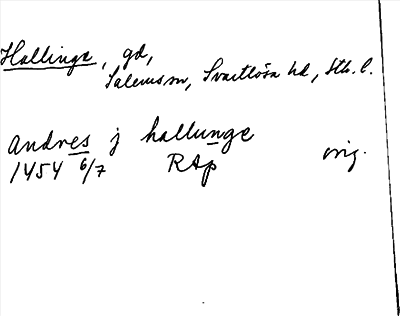 Hallinge, gd,
Salems sn, Svartlösa hd, Sth. l.
andres j hallunge
1454 6/7 RAp orig.